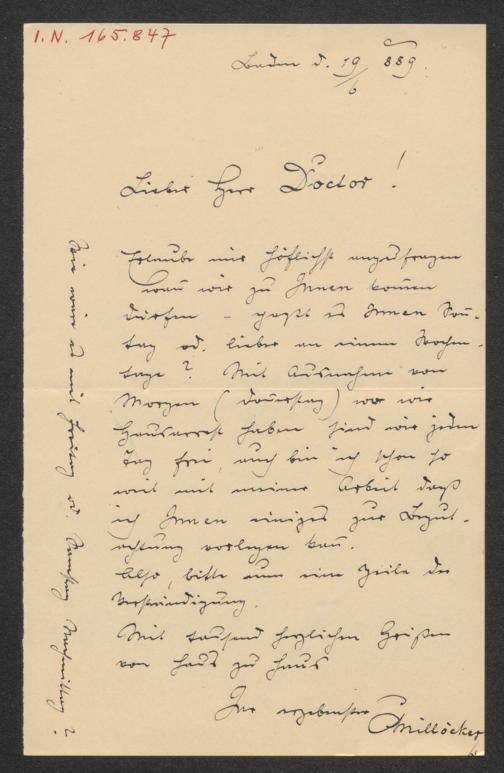 I.N. 165.847
Baden d. 19/6 889.
Lieber Herr Doctor!
Erlaube mir höflichst anzufragen
wan wir zu Ihnen komen
dürfen – paßt es Ihnen Son-
tag od. lieber an einem Wochen-
tage? Mit Ausnahme von
Morgen (Donerstag) wo wir
Hausarrest haben sind wir jeden
Tag frei, auch bin ich schon so
weit mit meiner Arbeit daß
ich Ihnen einiges zur Begut-
achtung vorlegen kan.
Also, bitte um eine Zeile der
Verständigung.
Mit tausend herzlichen Grüßen
von Haus zu Haus
Ihr ergebenster
CMillöcker
Wie wäre es mit Freitag od. Samstag Nachmittag?